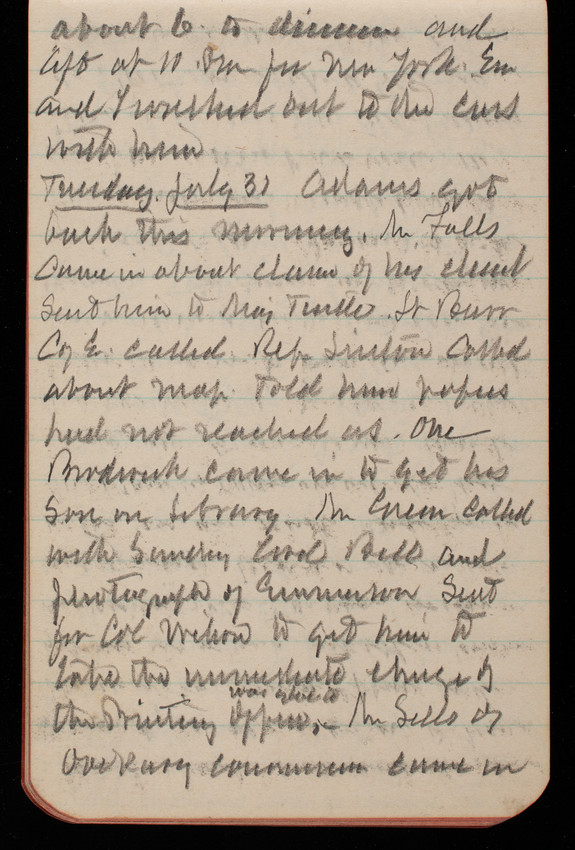 about 6. to dinner and
left at 10 Pm for New York. Em
and I walked out to the cars
with him
Tuesday, July 31 Adams got
back this morning. Mr Falls
Came in about claim of his client
Sent him to Maj Tuttle. Lt Burr
C of E. called. Rep. Linton Called
about map told him papers
had not reached us. One
Broderick came in to get his
Son on Library. Mr Green Called
with Sundry Civil Bill and
photograph of Emmerson Sent
for Col Wilson to get him to
take the immediate charge of
the Printing Office,
was glad to
Mr Sells of
Ordnance came in